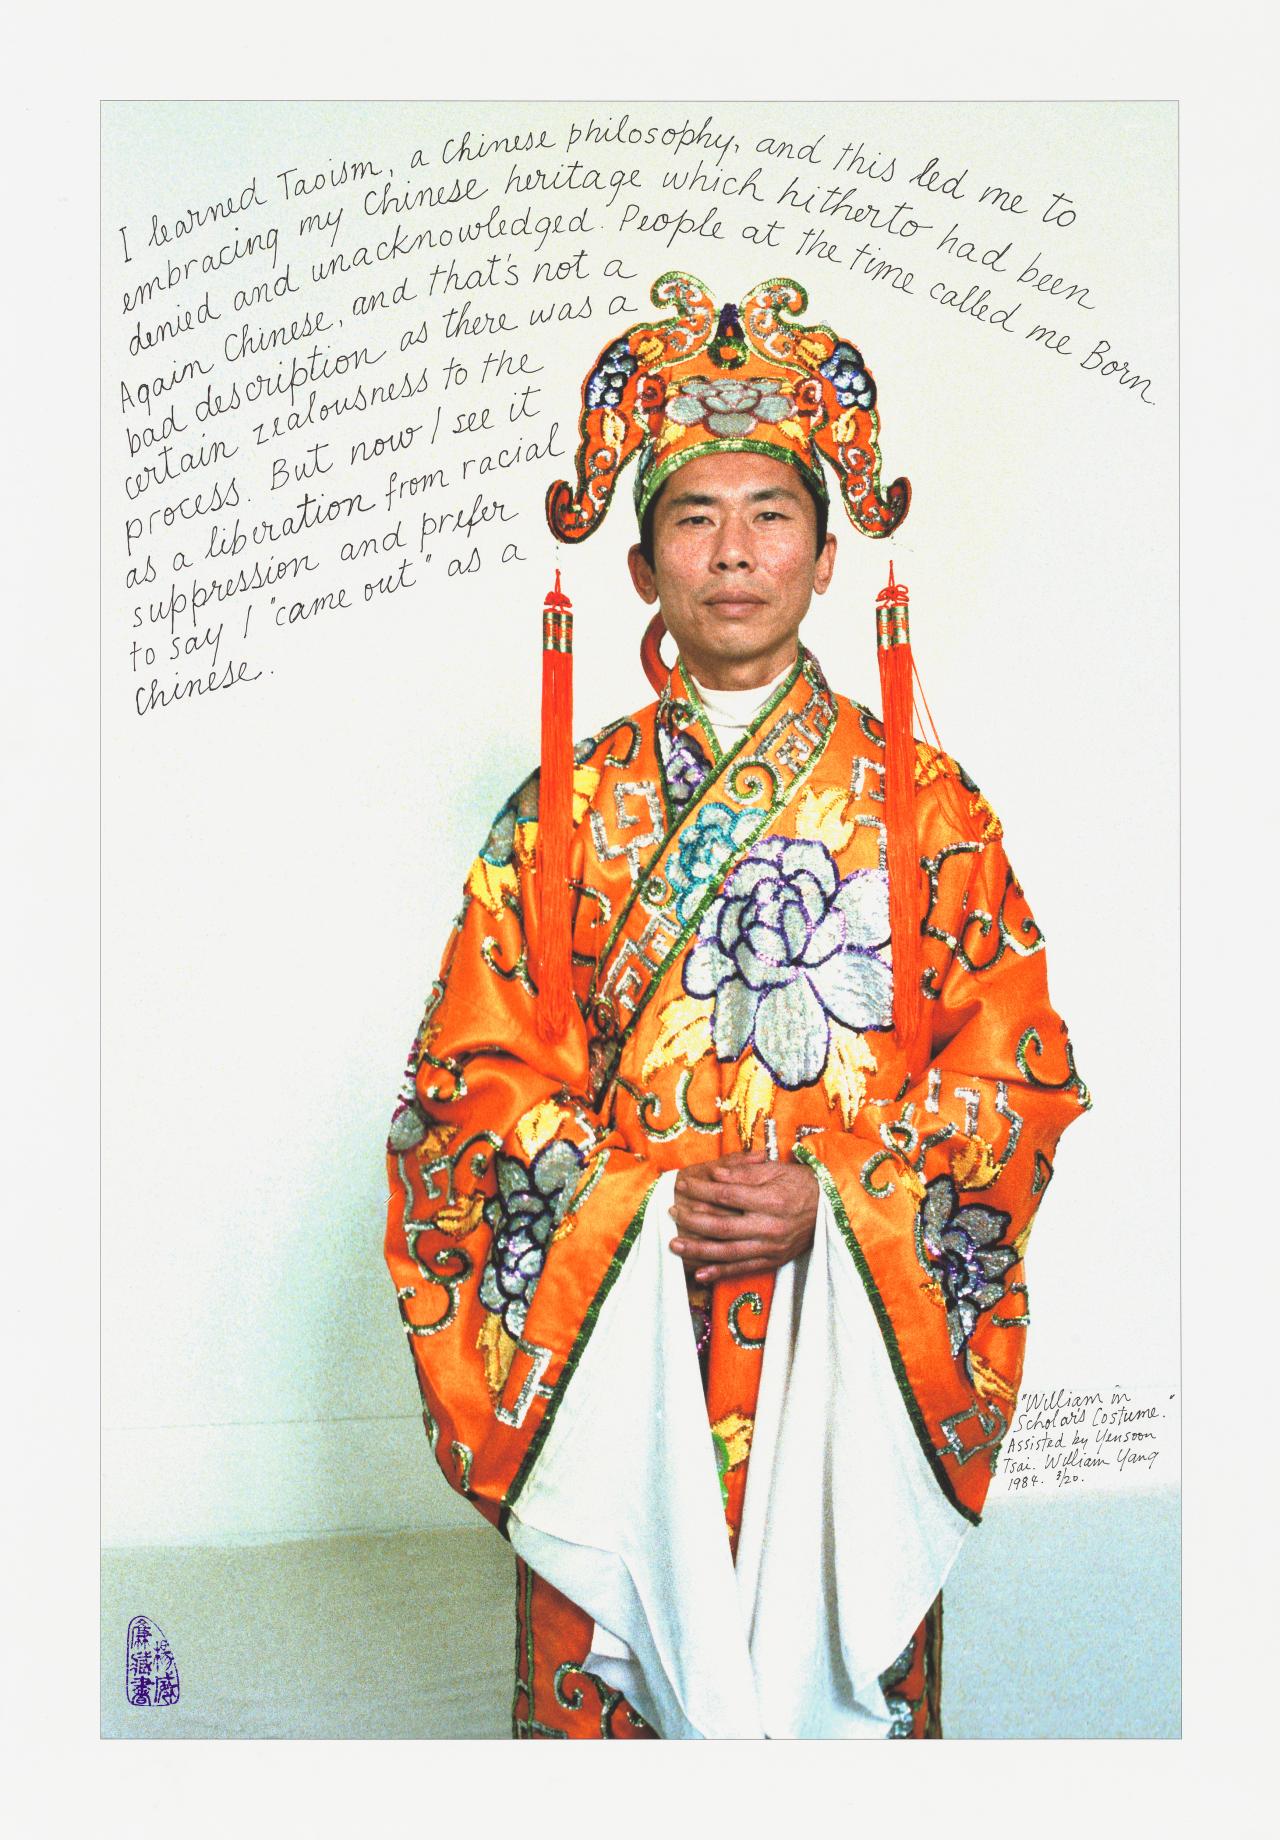 I learned Taoism, a Chinese philosophy, and this led me to
embracing my Chinese heritage which hitherto had been
denied and unacknowledged. People at the time called me Born
Again Chinese, and that's not a
bad description as there was a
certain zealousness to the
process. But now I see it
as a liberation from racial
suppression and prefer
to say I "came out" as a
Chinese.
"William in
Scholar's Costume."
Assisted by Yensoon
Tsai. William Yang
1984. 3/20.